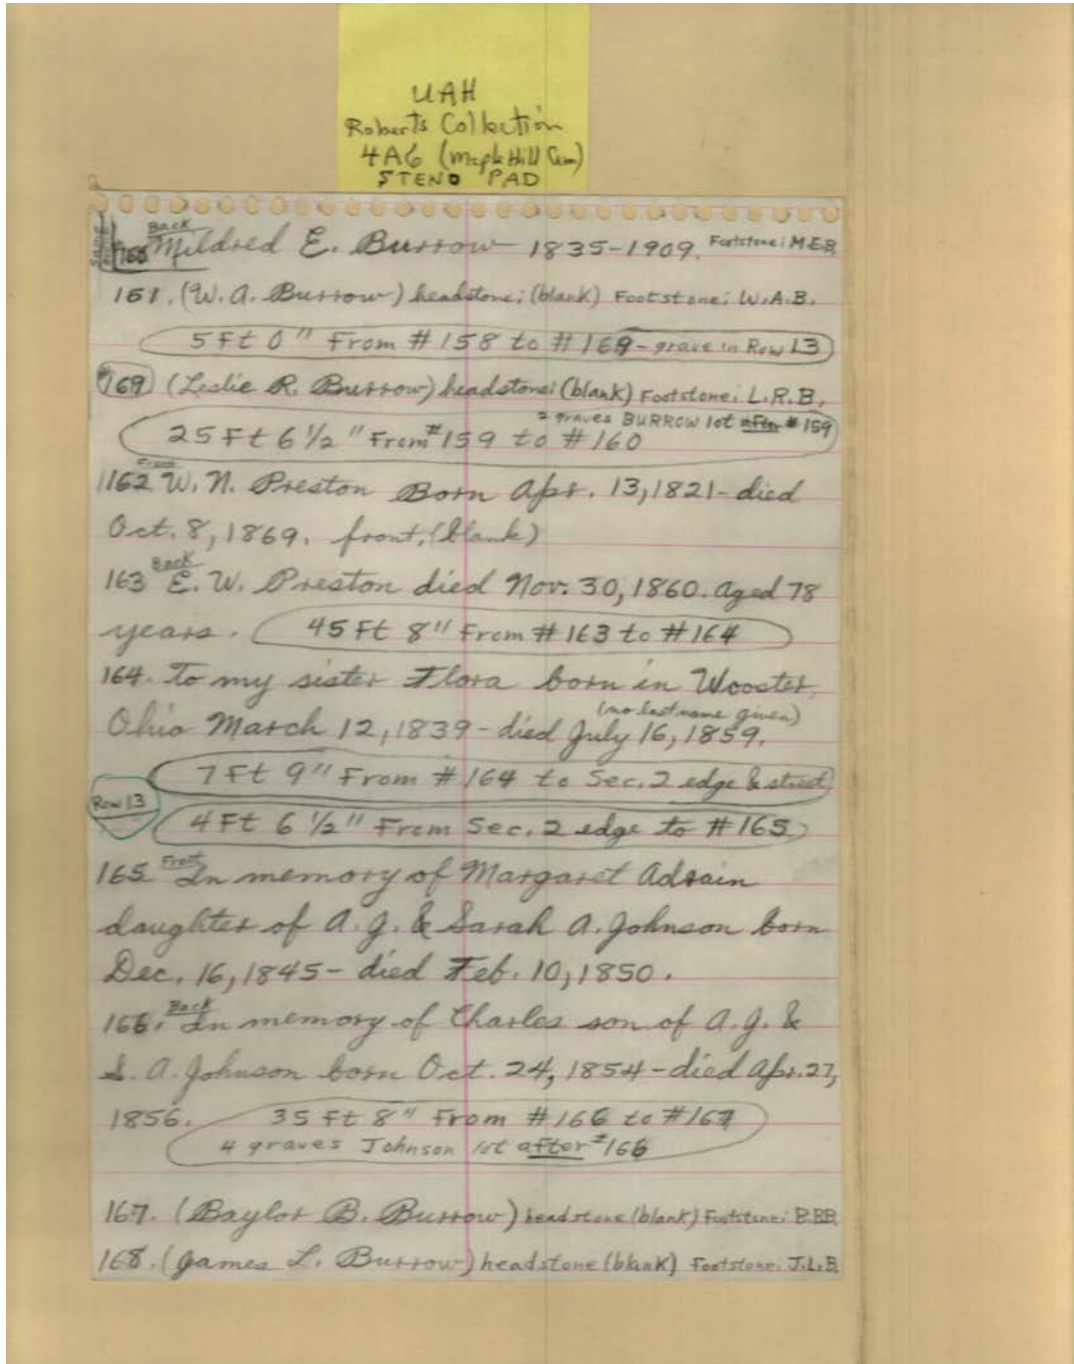 UAH
Roberts Collection
4A6 (Maple Hill Cem)
STENO PAD
Back
Mildred E. Burrow 1835-1909. Footstone: M.E.B.
161. (W. A. Burrow) headstone: (blank) Footstone: W.A.B.
5 Ft 0" From #158 to #169-grave in Row 13
#169 (Leslie R. Burrow) headstone: (blank) Footstone: L.R.B.
2 graves BURROW lot after #159
25 Ft 6 1/2" From #159 to #160
Front
162 W. N. Preston Born Apr. 13, 1821-died
Oct. 8, 1869. front, (blank)
Back
163 E. W. Preston died Nov. 30, 1860. Aged 78
years. 45 Ft 8" From #163 to #164
164. To my sister Flora born in Wooster,
(no last name given)
Ohio March 12, 1839-died July 16, 1859.
7 Ft 9" From #164 to Sec. 2 edge & street
Row 13
4 Ft 6 1/2" From Sec. 2 edge to #165
Front
165 In memory of Margaret Adrain
daughter of A. J. & Sarah A. Johnson born
Dec. 16, 1845-died Feb. 10, 1850.
Back
166. In memory of Charles son of A. J. &
S. A. Johnson born Oct. 24, 1854-died Apr. 27,
1856. 35 Ft 8" From #166 to #167
4 graves Johnson lot after #166
167. (Baylor B. Burrow) headstone (blank) Footstone: B.B.B.
168. (James L. Burrow) headstone (blank) Footstone: J.L.B.